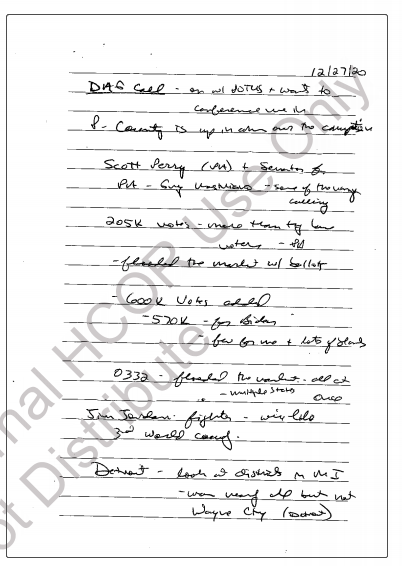 12/27/20
DAG Call - on w/ POTUS + wants to
conference me in
P - Country is up in arms over the corruption
Scott Perry (PA) + Senator for
PA - Guy Mastriano - some of the
calling
205K votes - more than they have
voters - PA
- flooded the market w/ ballots
- 600K votes added
- 570K - for Biden
- few for me + lots of
0332 - flooded the market - all at
- multiple states once
Jim Jordan: fighter -
3rd world county.
Detroit - look at districts in MI
- won nearly all but not
Wayne Cty (Detroit)
HCOR Use Only
ot Distribute